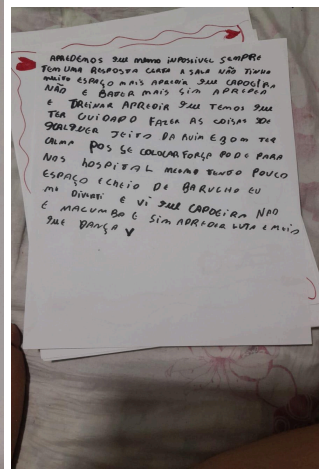 APREDEMOS QUE MEMO INPOSSIVEL SEMPRE
TEM UMA RESPOSTA CERTA A SALA NÃO TINHA
MUITO ESPAÇO MAIS APREDIR QUE CAPOEIRA
NÃO E BATER MAIS SIM APREDER
E TREINAR APREDIR QUE TEMOS QUE
TER CUIDADO FAZER AS COISAS DE
QUALQUER JEITO DA RUIM E BOM TER
CALMA POS SE COLOCAR FORÇA PODE PARA
NOS HOSPITAL MESMO TENDO POUCO
ESPAÇO E CHEIO DE BARUCHO EU
ME DIVERTI E VI QUE CAPOEIRA NÃO
E MACUMBA E SIM APREDER LUTA E MAIS
QUE DANÇA